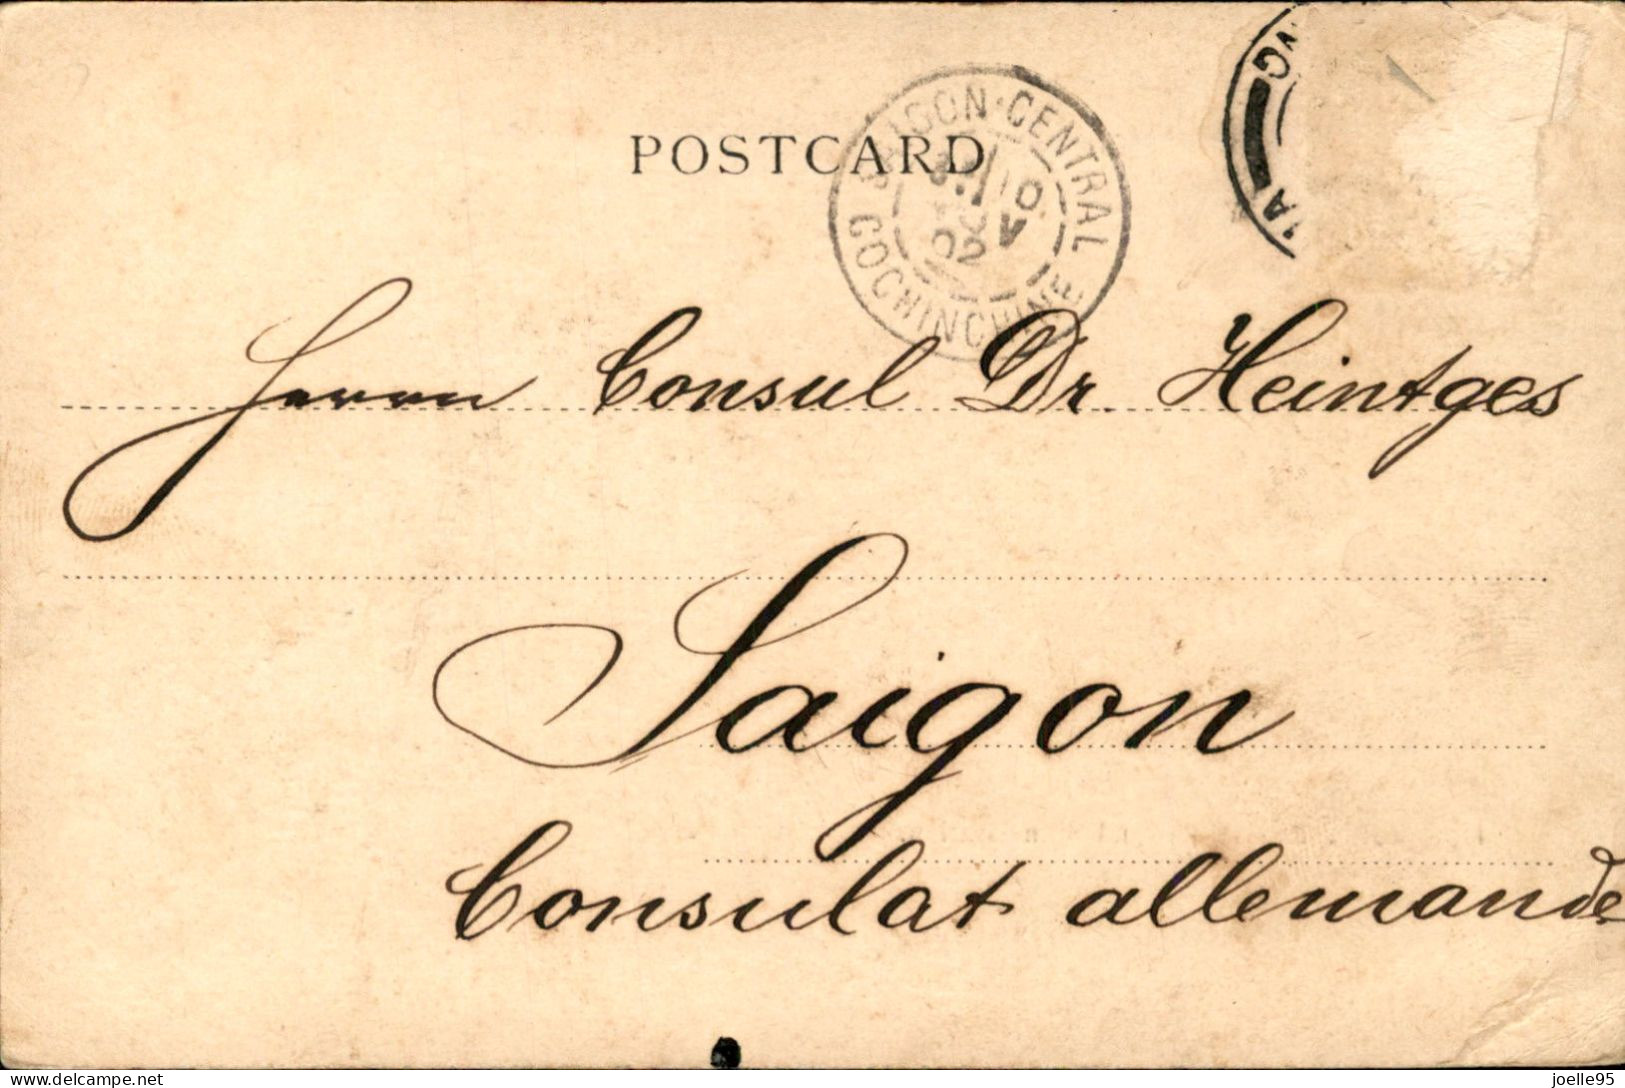 POSTCARD
SAIGON-CENTRAL
10
02
COCHINCHINE
Herrn Consul Dr. Heintges
Saigon
Consulat allemande
delcampe.net
joelle95